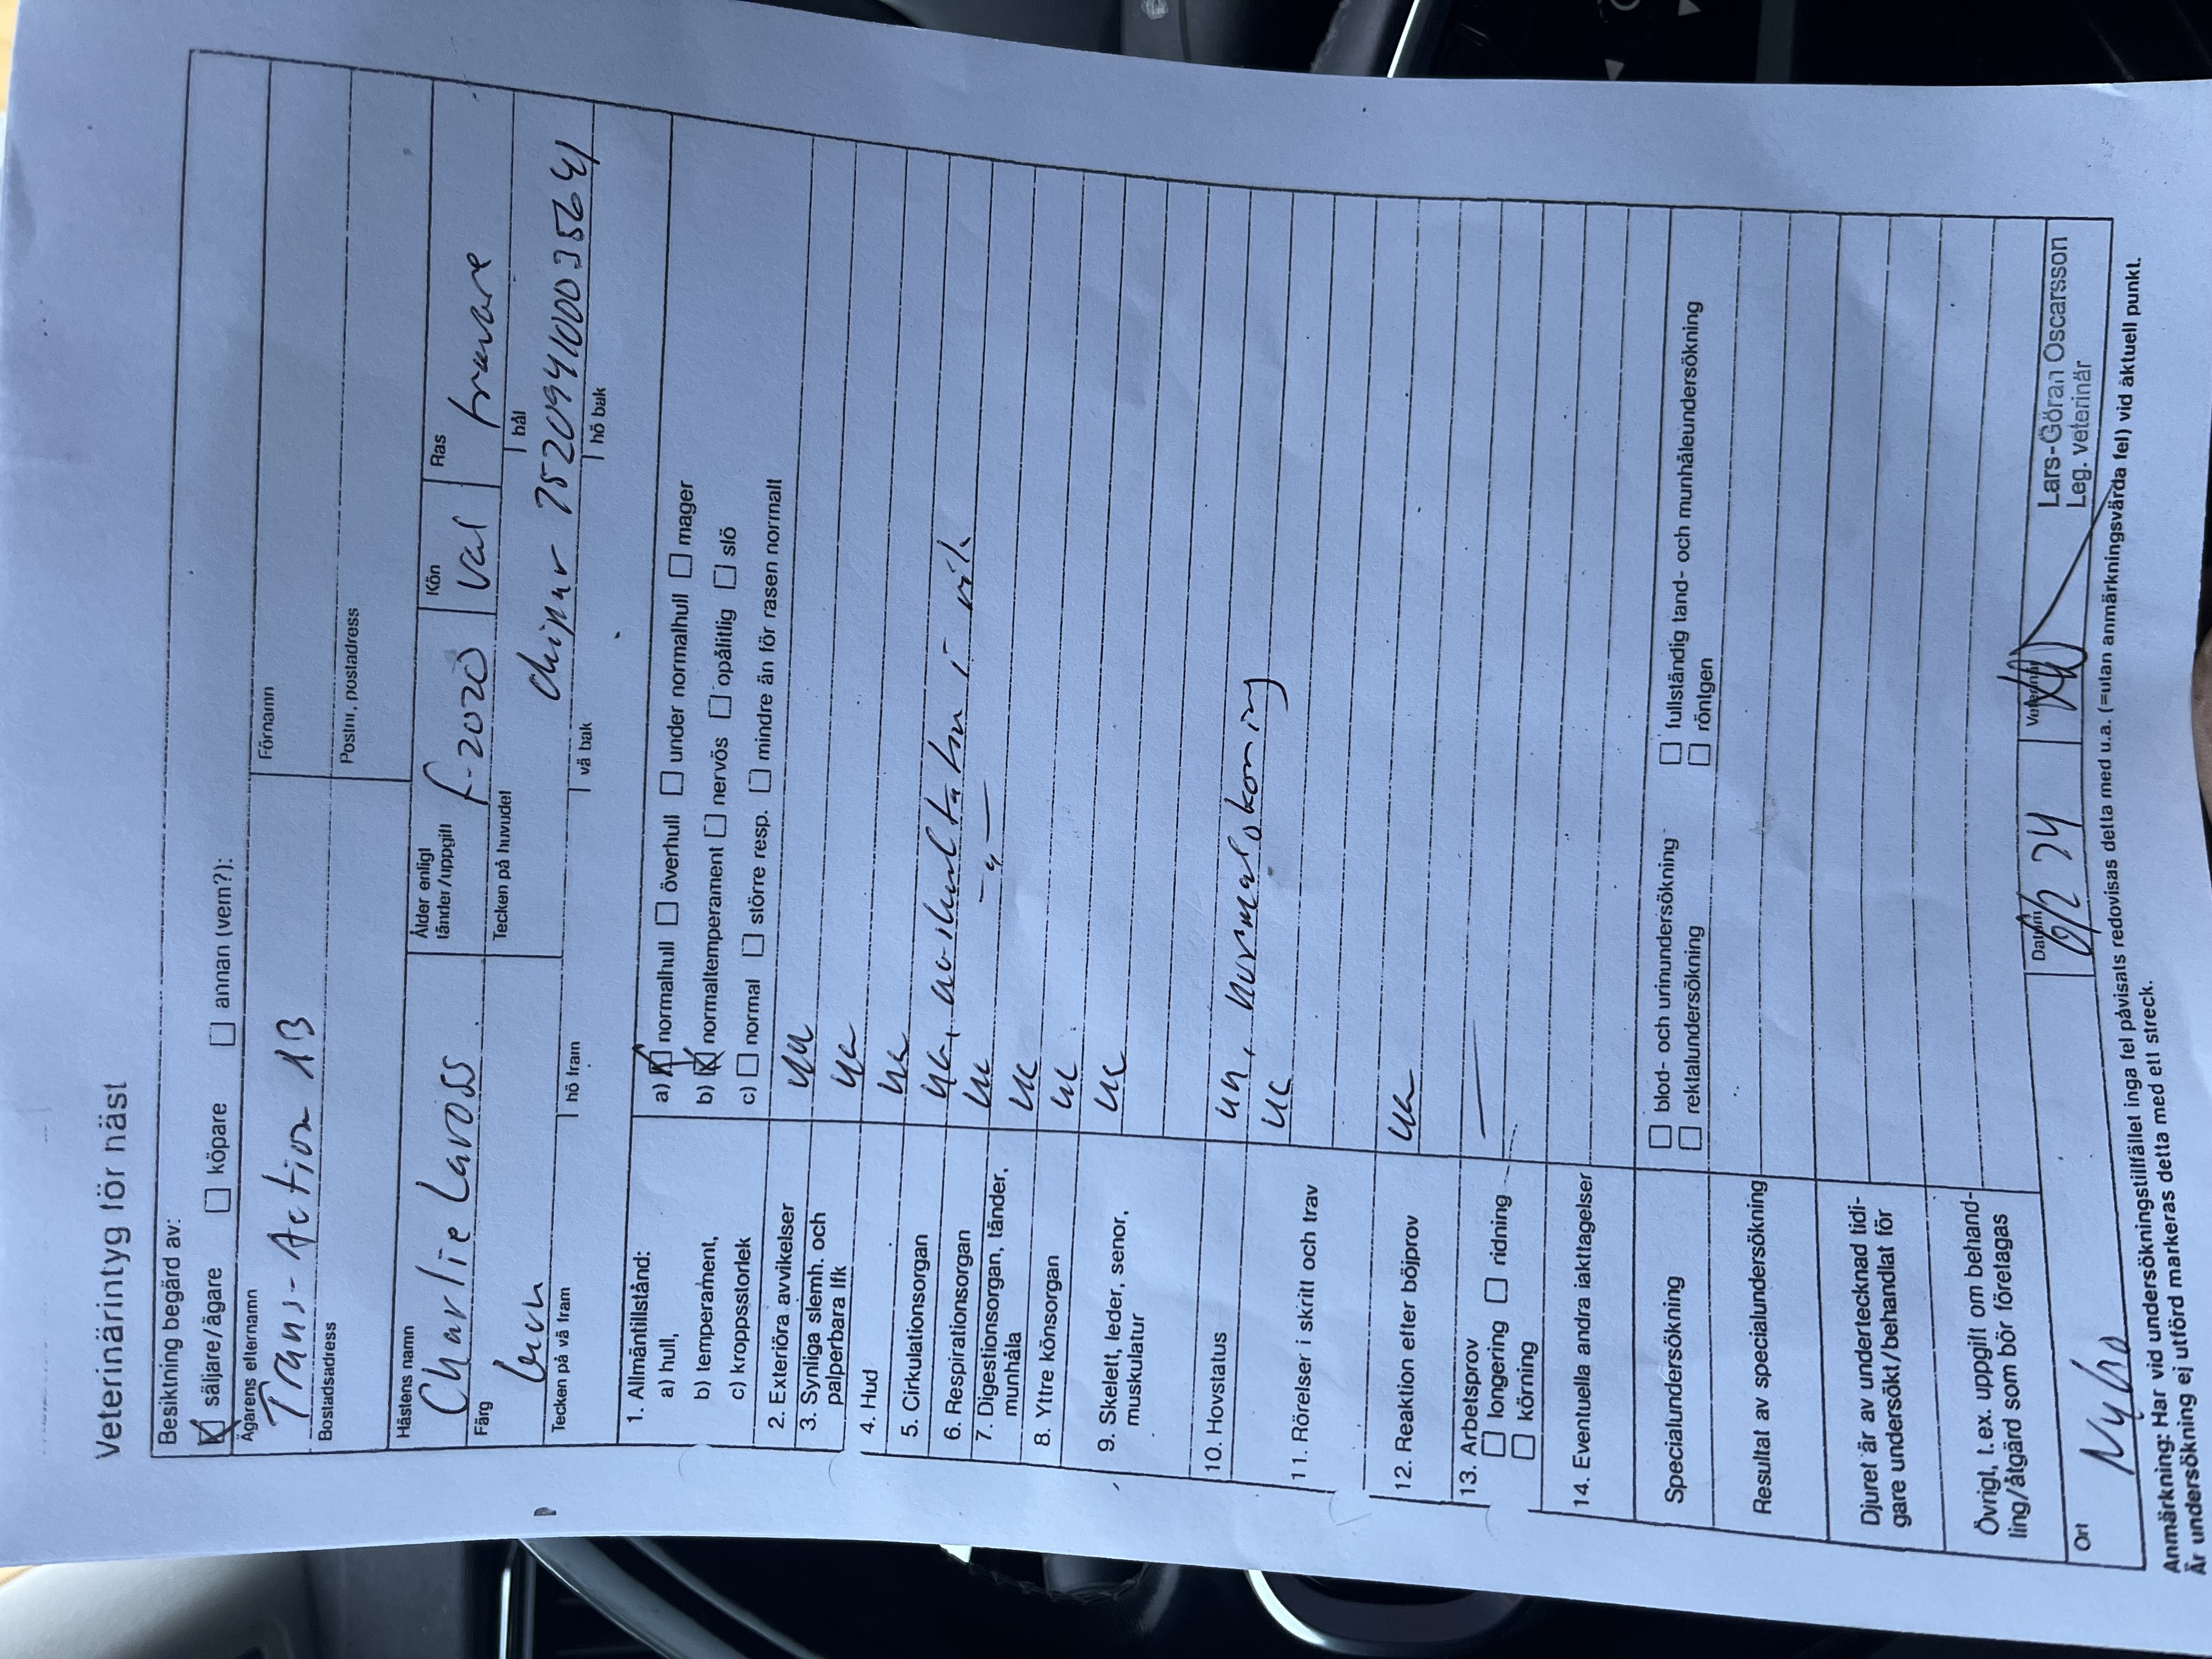 Veterinärintyg för häst
Besiktning begärd av:
säljare/ägare köpare annan (vem?):
Ägarens efternamn Förnamn
Trans-Action AB
Bostadsadress Postnr, postadress
Hästens namn Ålder enligt tänder/uppgift Kön Ras
Charlie Laross f-2020 Val travare
Färg Tecken på huvudet bål
brun Chipnr 752094100035641
Tecken på vä fram hö fram vä bak hö bak
1. Allmäntillstånd:
a) hull, a) normalhull överhull under normalhull mager
b) temperament, b) normaltemperament nervös opålitlig slö
c) kroppsstorlek c) normal större resp. mindre än för rasen normalt
2. Exteriöra avvikelser ua
3. Synliga slemh. och palperbara lfk ua
4. Hud ua
5. Cirkulationsorgan ua, auskultation i vila
6. Respirationsorgan ua -"-
7. Digestionsorgan, tänder, munhåla ua
8. Yttre könsorgan ua
9. Skelett, leder, senor, muskulatur ua
10. Hovstatus ua, normalskoning
11. Rörelser i skritt och trav ua
12. Reaktion efter böjprov ua
13. Arbetsprov —
longering ridning
körning
14. Eventuella andra iakttagelser
Specialundersökning blod- och urinundersökning fullständig tand- och munhåleundersökning
rektalundersökning röntgen
Resultat av specialundersökning
Djuret är av undertecknad tidi-
gare undersökt/behandlat för
Övrigt, t.ex. uppgift om behand-
ling/åtgärd som bör företagas
Ort Datum Veterinär
Nybro 6/2 24 Lars-Göran Oscarsson
Leg. veterinär
Anmärkning: Har vid undersökningstillfället inga fel påvisats redovisas detta med u.a. (=utan anmärkningsvärda fel) vid aktuell punkt.
Är undersökning ej utförd markeras detta med ett streck.